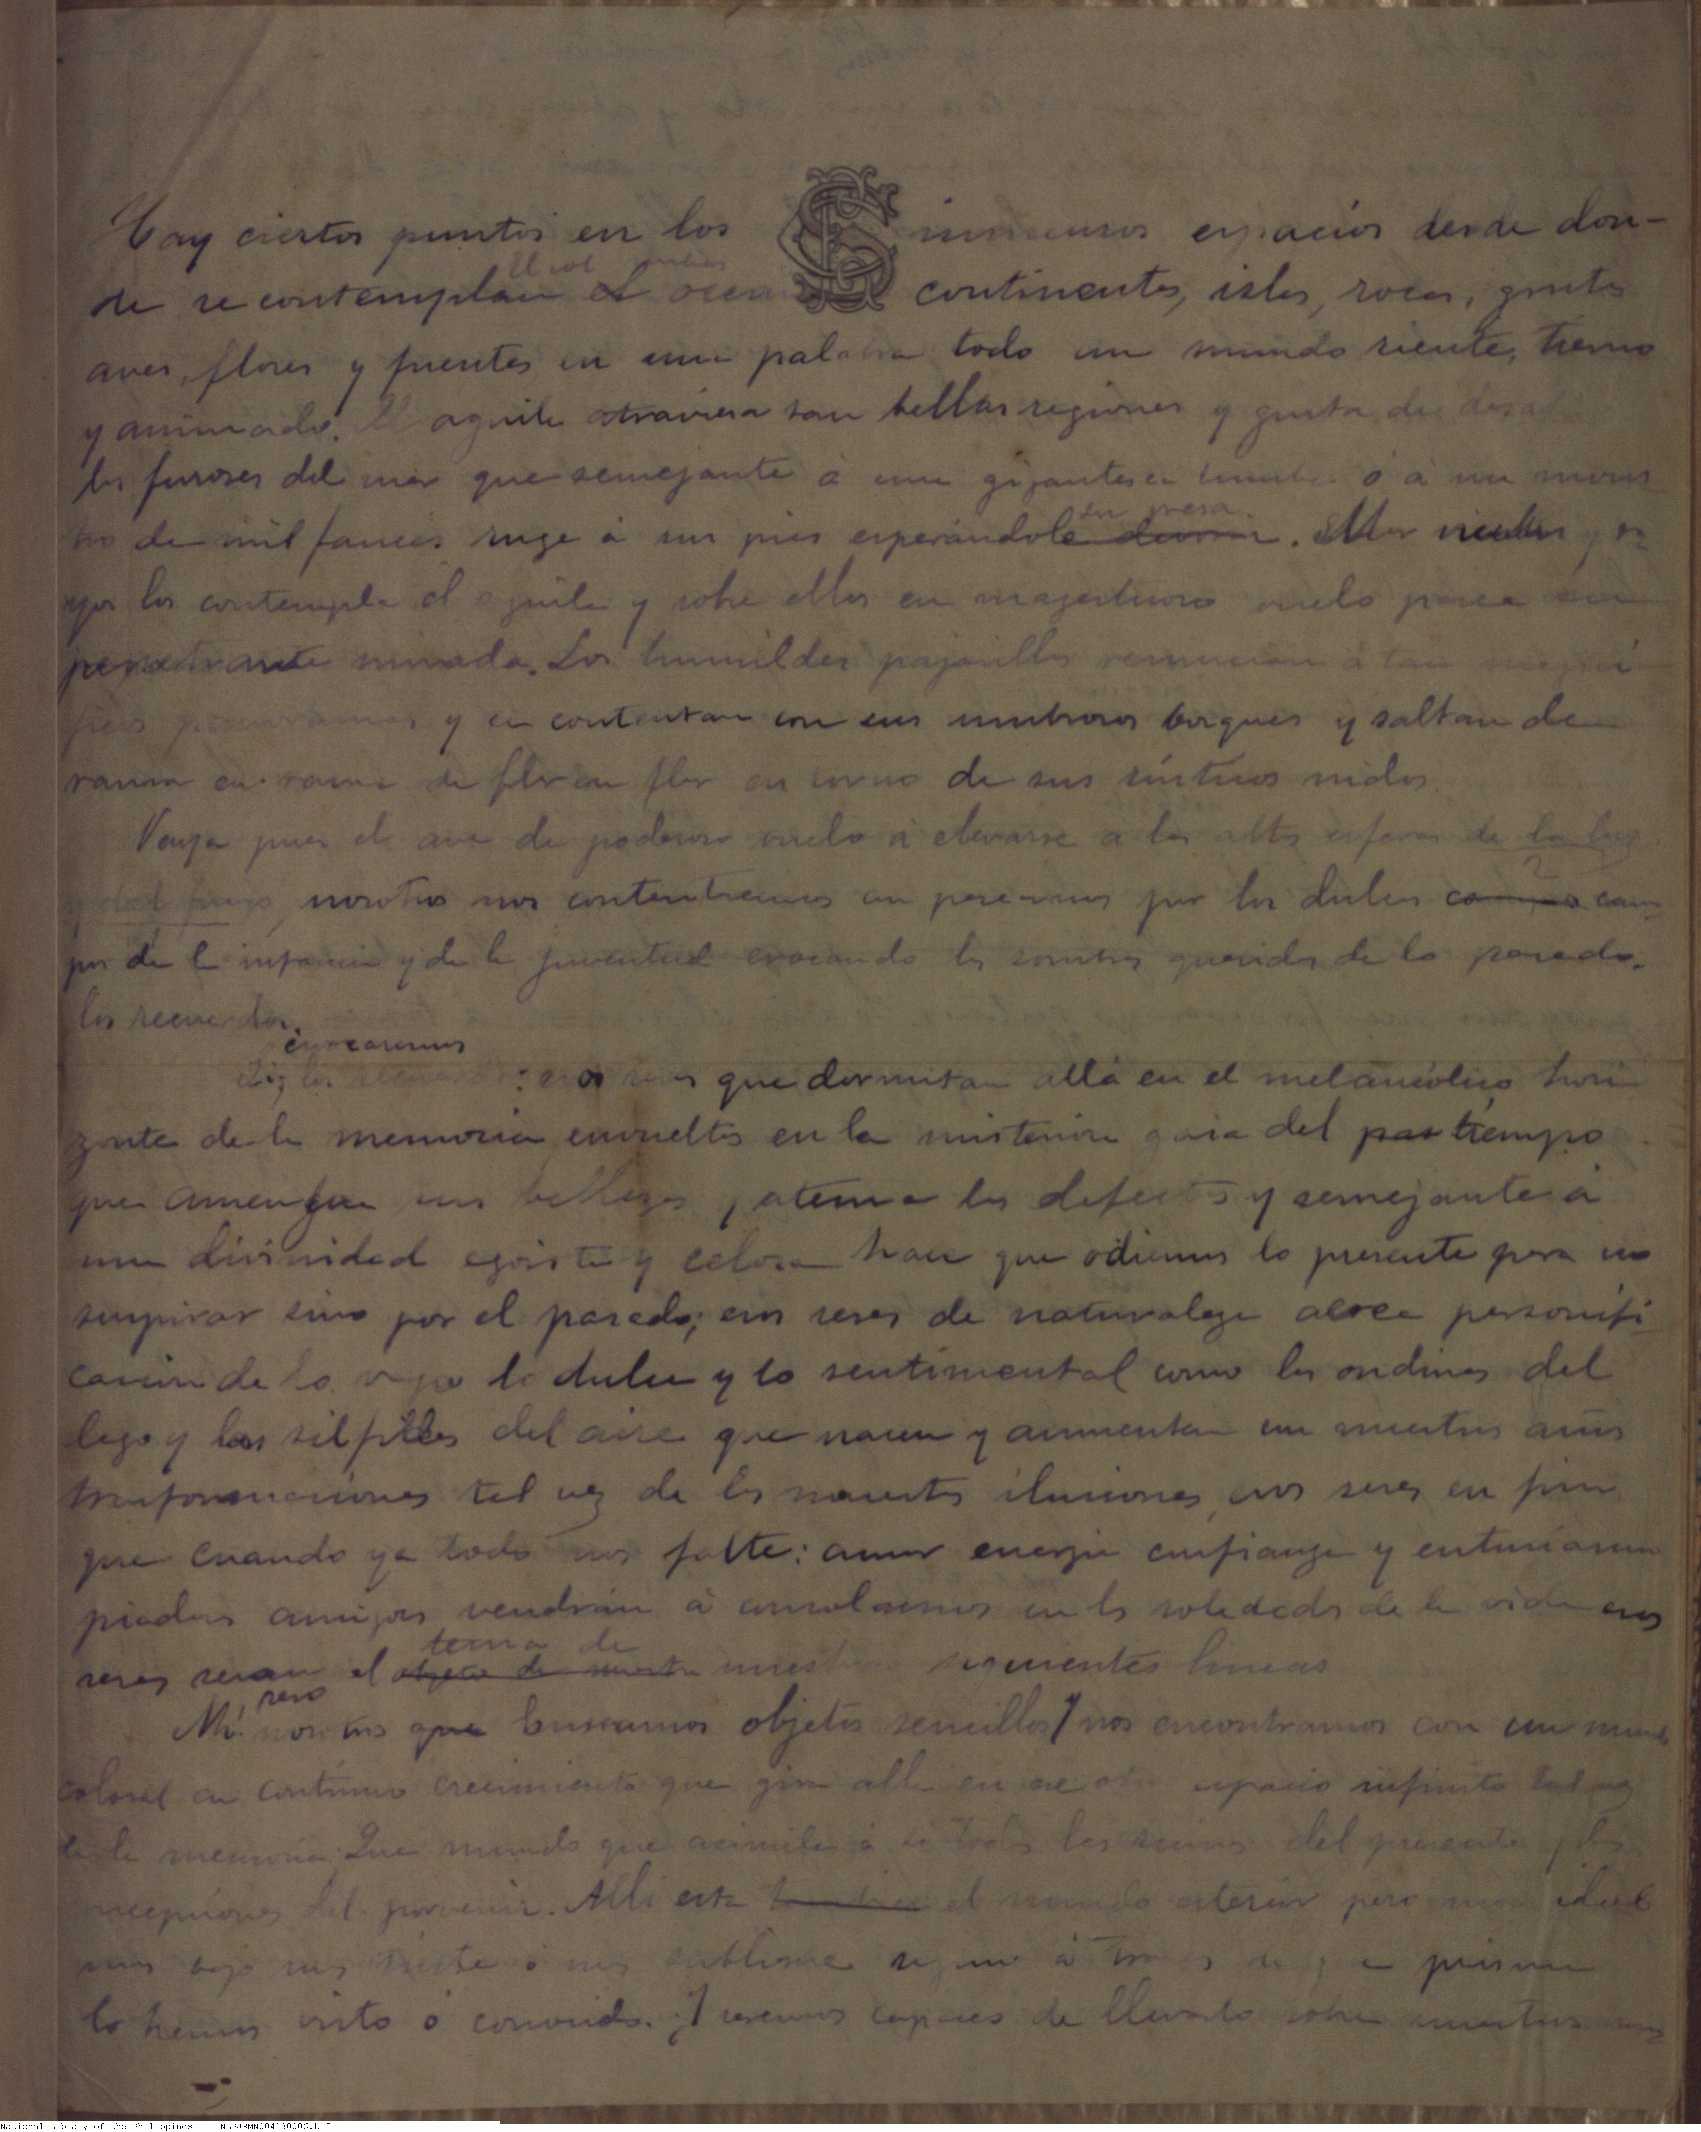 Hay ciertos puntos en los inmensos espacios desde don-
de se contemplan el sol continentes, islas, rocas, grutas
aves, flores y fuentes en una palabra todo un mundo riente, tierno
y animado. El aguila atraviesa tan bellas regiones y gusta de
los furores del mar que semejante á una gigantesca tumba ó á un mons
truo de mil fauces ruge á sus pies esperándole su presa.
los contempla el aguila y sobre ellos en magestuoso vuelo pasea su
penetrante mirada. Los humildes pajarillos renuncian á tan magní
ficos panoramas y se contentan con sus umbrosos bosques y saltan de
rama en rama de flor en flor en torno de sus rústicos nidos.
Vaya pues el ave de poderoso vuelo á elevarse a las altas esferas de la luz
y del fuego, nosotros nos contentaremos con pasearnos por los dulces cam
pos de la infancia y de la juventud evocando las sombras queridas de lo pasado.
los recuerdos.
evocaremos
los recuerdos: esos seres que dormitan allá en el melancólico hori
zonte de la memoria envueltos en la misteriosa gasa del tiempo
que aumenta sus bellezas, atenua los defectos y semejante á
una divinidad egoista y celosa hace que odiemos lo presente para no
suspirar sino por el pasado; esos seres de naturaleza aerea personifi-
cación de lo vago lo dulce y lo sentimental como las ondinas del
lago y las silfides del aire que nacen y aumentan con nuestros años
trasformaciones tal vez de las muertas ilusiones, esos seres en fin
que cuando ya todo nos falte: amor energia confianza y entusiasmo
piadosos amigos vendrán á consolarnos en las soledades de la vida esos
seres seran el tema de nuestras siguientes lineas
pero nosotros que buscamos objetos sencillos nos encontramos con un mundo
colosal en contínuo crecimiento que gira allá en ese otro espacio infinito
de la memoria. Que mundo que asimila á si todas las ruinas del presente
del porvenir. Alli esta el mundo esterior pero mas ideal
mas triste ó mas sublime segun á traves de que prisma
lo hemos visto ó conocido. ¿Y seremos capaces de llevarlo sobre nuestros